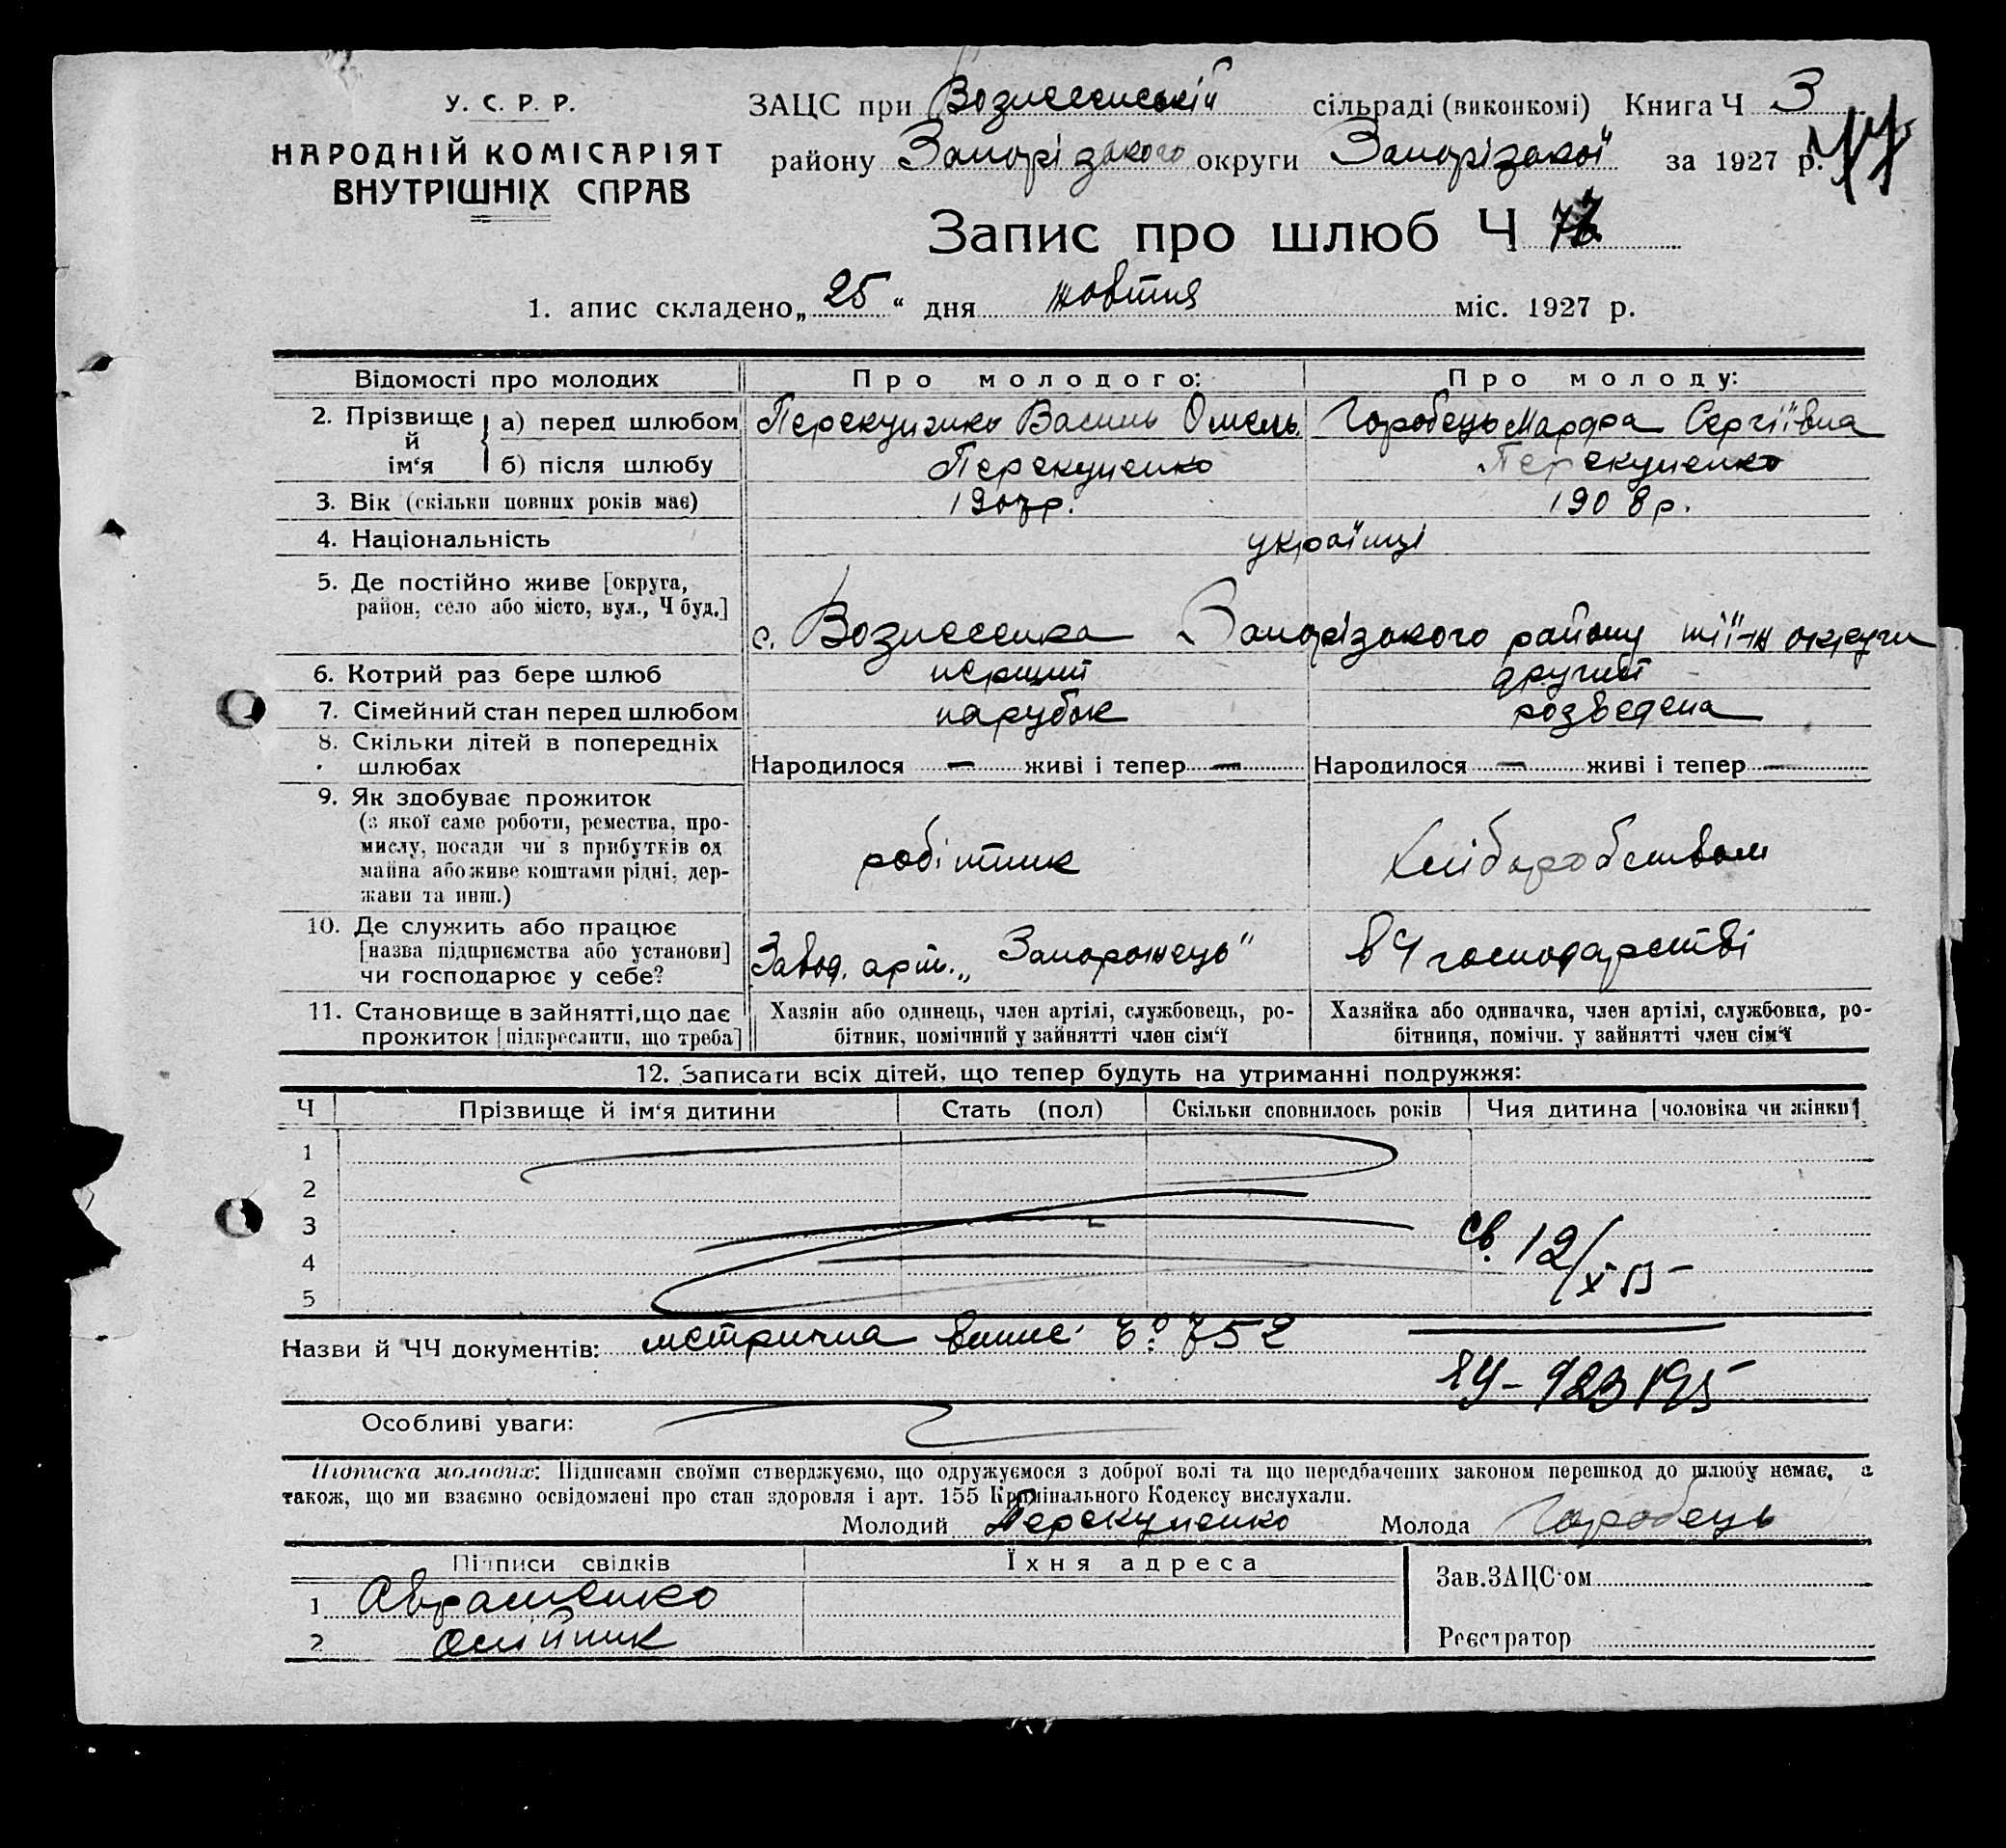 У. С. Р. Р.
НАРОДНІЙ КОМІСАРІЯТ
ВНУТРІШНІХ СПРАВ
ЗАЦС при Вознесенській сільраді (виконкомі) Книга Ч 3
району Запорізького округи Запорізької за 1927 р. 77
Запис про шлюб Ч 77
1. апис складено „ 25 “ дня жовтня міс. 1927 р.
Відомості про молодих Про молодого: Про молоду:
2. Прізвище й ім‘я а) перед шлюбом Перекупенко Василь Омель. Горобець Марфа Сергіївна
б) після шлюбу Перекупенко Перекупенко
3. Вік (скільки повних років має) 1907р. 1908р.
4. Національність українці
5. Де постійно живе [округа,
район, село або місто, вул., Ч буд.] с. Вознесенка Запорізького району тії-ж округи
6. Котрий раз бере шлюб перший другий
7. Сімейний стан перед шлюбом парубок розведена
8. Скільки дітей в попередніх
шлюбах Народилося — живі і тепер — Народилося — живі і тепер —
9. Як здобуває прожиток
(з якої саме роботи, ремества, про-
мислу, посади чи з прибутків од
майна або живе коштами рідні, дер-
жави та инш.) робітник Хліборобством
10. Де служить або працює
[назва підприємства або установи]
чи господарює у себе? Завод. арт. „Запорожець“ в г господарстві
11. Становище в зайнятті, що дає
прожиток [підкреслити, що треба]
Хазяін або одинець, член артілі, службовець, ро-
бітник, помічний у зайнятті член сім‘ї
Хазяйка або одиначка, член артілі, службовка, ро-
бітниця, помічн. у зайнятті член сім‘ї
12. Записати всіх дітей, що тепер будуть на утриманні подружжя:
Ч Прізвище й ім‘я дитини Стать (пол) Скільки сповнилось років Чия дитина [чоловіка чи жінки]
1
2
3
4
5
св. 12/X
Назви й ЧЧ документів: метрична випис. Ч. 752
Особливі уваги:
Підписка молодих: Підписами своїми стверджуємо, що одружуємося з доброї волі та що передбачених законом перешкод до шлюбу немає, а
також, що ми взаємно освідомлені про стан здоровля і арт. 155 Кримінального Кодексу вислухали.
Молодий Перекупенко Молода Горобець
Підписи свідків Їхня адреса
1 Авраменко
2 Олійник
Зав. ЗАЦС‘ом
Реєстратор